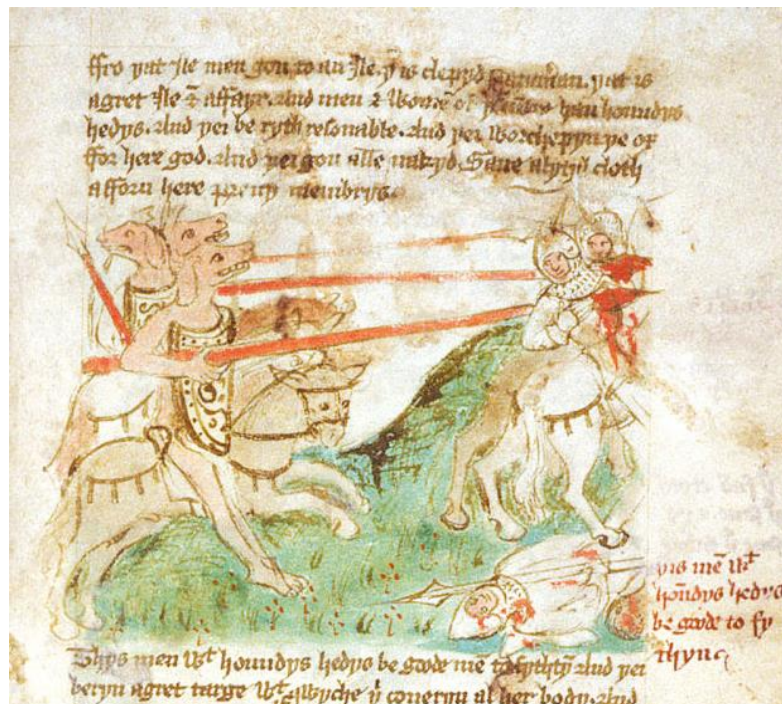 ffro yat Ile men gon to an Ile. y is clepyd yat is
agret Ile & affayr. And men & Women of han houndys
hedys. And yei be ryth resonable. And yei Worcheppyn ye ox
ffor here god. And yei gon alle nakyd. Saue alytyl cloth
afforn here preuy membrys.
yis men Wt
houndys hedys
be goode to fy
thyng
Thys men Wt houndys hedys be goode men And yei
beryn agret targe Wt Wyche y coueryn al her body. And